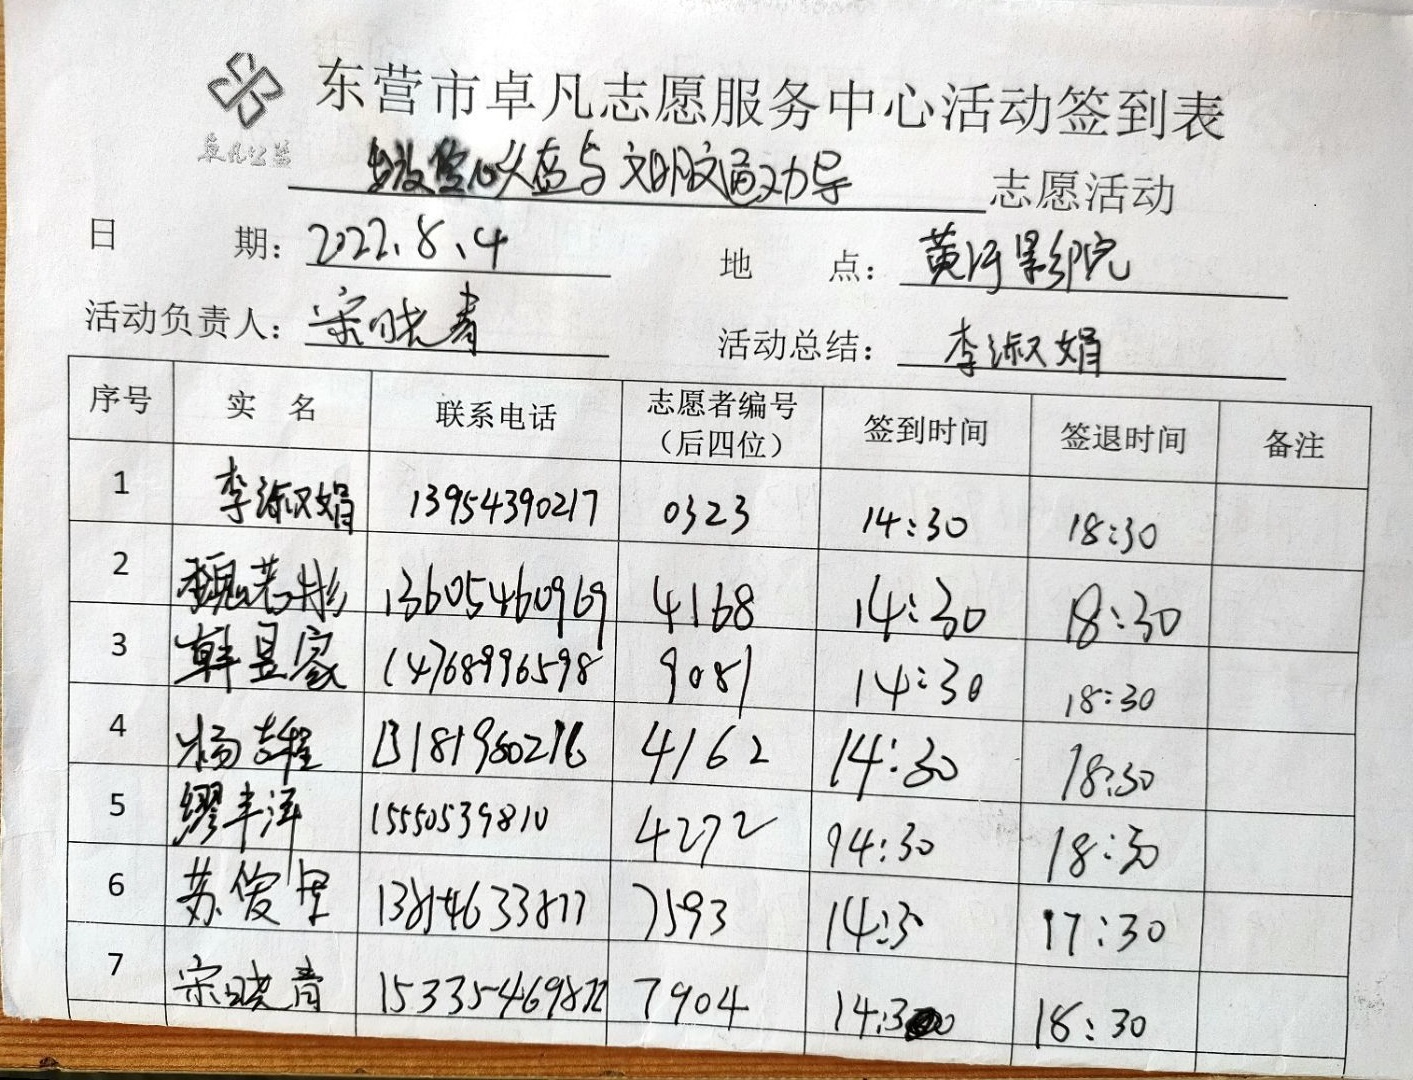 东营市卓凡志愿服务中心活动签到表
卓凡公益
与文明交通劝导 志愿活动
日期：2022.8.4 地点：黄河影院
活动负责人：宋晓青 活动总结：李淑娟
序号 实名 联系电话 志愿者编号（后四位） 签到时间 签退时间 备注
1 李淑娟 13954390217 0323 14:30 18:30
2 魏若彬 13605460969 4168 14:30 18:30
3 韩昱家 14768996598 9081 14:30 18:30
4 杨志程 13181980216 4162 14:30 18:30
5 缪丰泽 15550539810 4272 94:30 18:30
6 苏俊 7593 14:3 17:30
7 宋晓青 7904 14:30 18:30